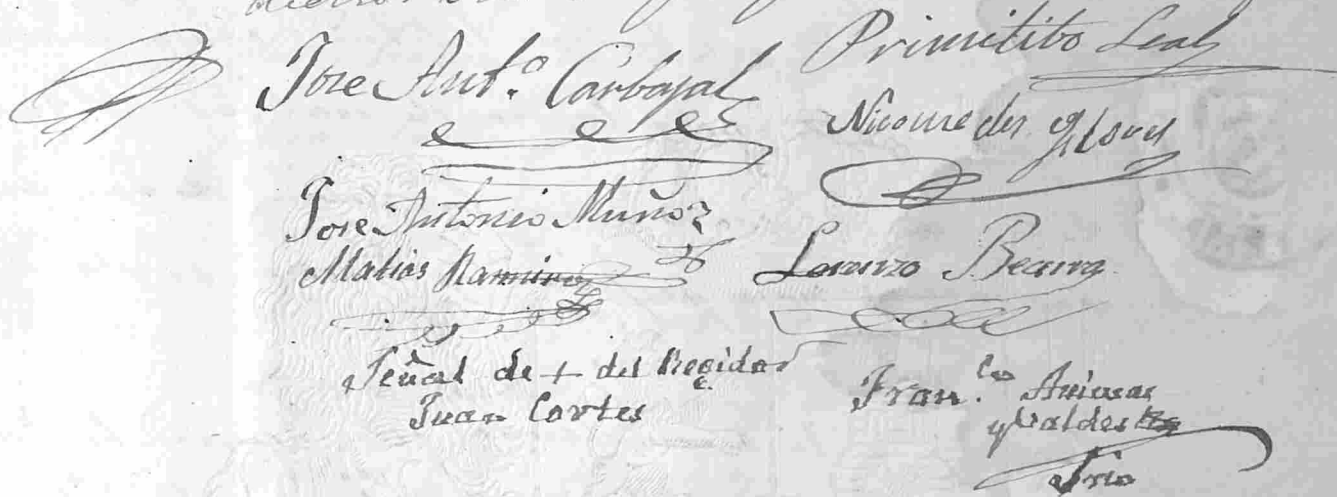 Jose Ant.º Carbajal
Primitibo Leal
Nicomedes
Jose Antonio Muñoz
Matias Ramirez
Lorenzo
Señal de + del Regidor
Juan Cortes
Fran.co
y Valdes
Srio